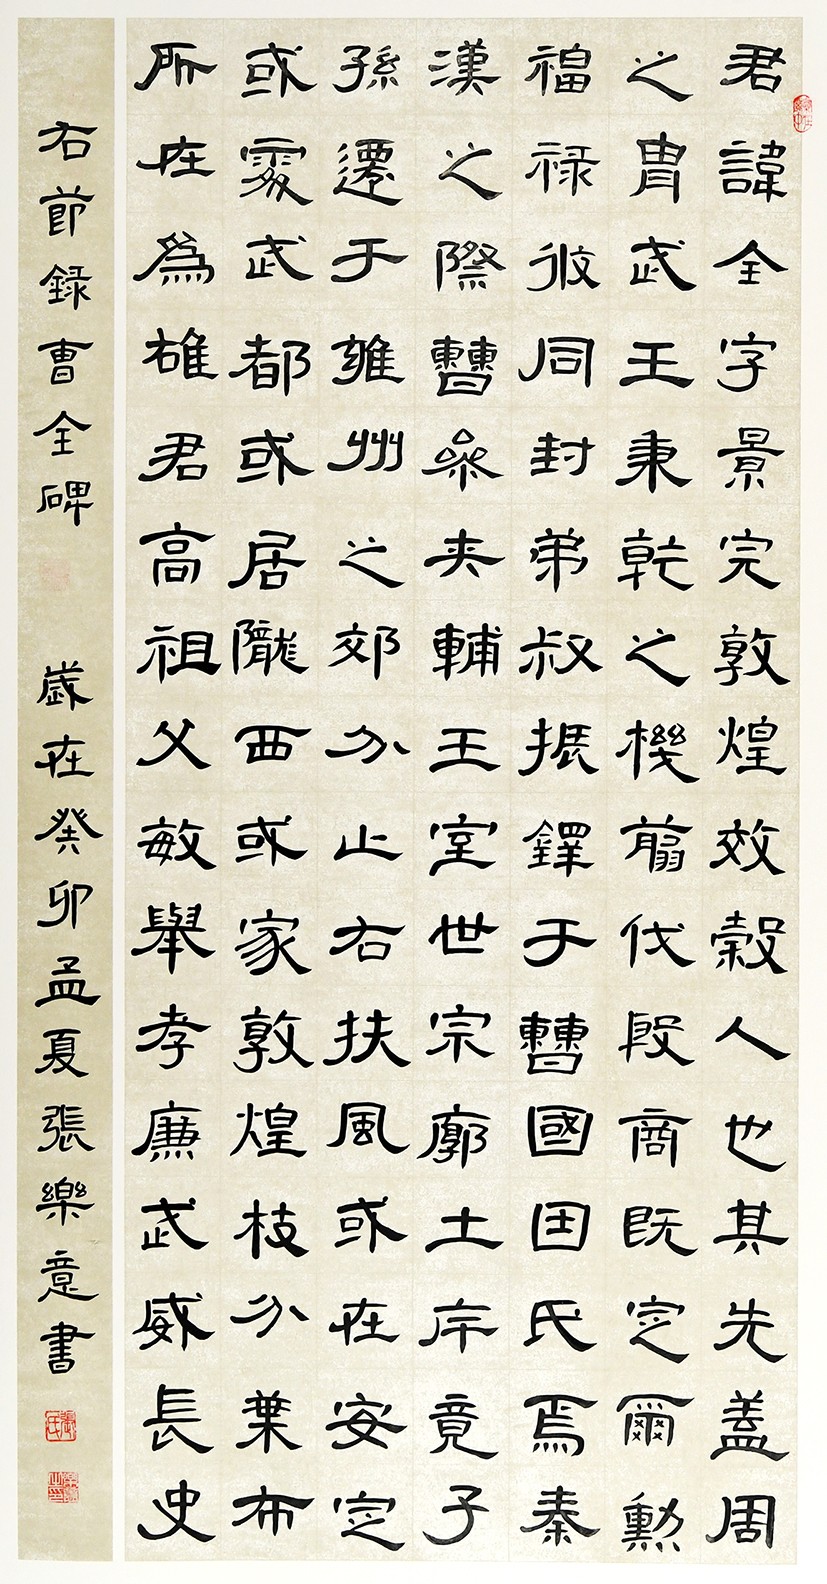 君諱全字景完敦煌效穀人也其先蓋周
之胄武王秉乾之機翦伐殷商既定爾勳
福祿攸同封弟叔振鐸于曹國因氏焉秦
漢之際曹參夾輔王室世宗廓土斥竟子
孫遷于雍州之郊分止右扶風或在安定
或處武都或居隴西或家敦煌枝分葉布
所在為雄君高祖父敏舉孝廉武威長史
右節錄曹全碑
歲在癸卯孟夏張樂意書